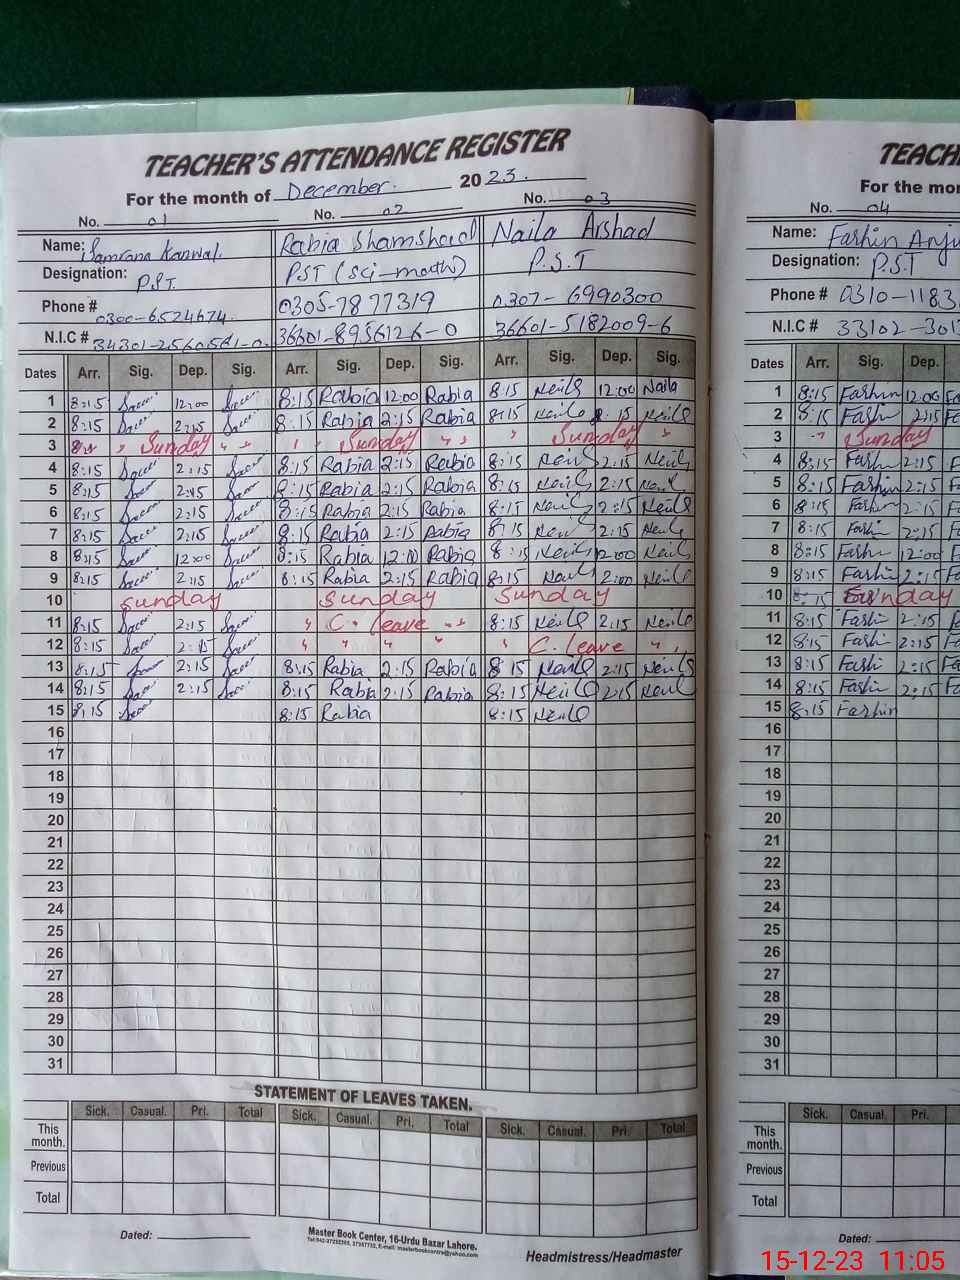 TEACHER'S ATTENDANCE REGISTER
For the month of December. 2023.
No. 01 No. 02 No. 03
Name: Kanwal. Rabia Shamshad Naila Arshad
Designation: P.S.T. PST (Sci-math) P.S.T
Phone # 0300-6524674. 0305-7877319 0307-6990300
N.I.C # 34301-2560561-0 36601-8956126-0 36601-5182009-6
Dates Arr. Sig. Dep. Sig. Arr. Sig. Dep. Sig. Arr. Sig. Dep. Sig.
1 8:15 12:00 8:15 Rabia 12:00 Rabia 8:15 12:00 Naila
2 8:15 2:15 8:15 Rabia 2:15 Rabia 8:15 15
3 Sunday Sunday Sunday
4 8:15 2:15 8:15 Rabia 2:15 Rabia 8:15 2:15
5 8:15 2:15 8:15 Rabia 2:15 Rabia 8:15 2:15
6 8:15 2:15 8:15 Rabia 2:15 Rabia 8:15 2:15
7 8:15 2:15 8:15 Rabia 2:15 Rabia 8:15 2:15
8 8:15 12:00 8:15 Rabia 12:00 Rabia 8:15 12:00
9 8:15 2:15 8:15 Rabia 2:15 Rabia 8:15 2:00
10 Sunday Sunday Sunday
11 8:15 2:15 C. leave 8:15 2:15
12 8:15 2:15 " " " " C. leave
13 8:15 2:15 8:15 Rabia 2:15 Rabia 8:15 2:15
14 8:15 2:15 8:15 Rabia 2:15 Rabia 8:15 2:15
15 8:15 8:15 Rabia 8:15
16
17
18
19
20
21
22
23
24
25
26
27
28
29
30
31
STATEMENT OF LEAVES TAKEN.
Sick. Casual. Pri. Total Sick. Casual. Pri. Total Sick. Casual. Pri. Total
This month.
Previous
Total
Dated:
Master Book Center, 16-Urdu Bazar Lahore.
Headmistress/Headmaster
TEACH
For the mon
No. 04
Name: Fashin Anju
Designation: P.S.T
Phone # 0310-1183
N.I.C # 33102-301
Dates Arr. Sig. Dep.
1 8:15 Fashin 12:00 Fa
2 8:15 Fashi 2:15 Fa
3 Sunday
4 8:15 Fashi 2:15 F
5 8:15 Fashin 2:15 F
6 8:15 Fashin 2:15 F
7 8:15 Fashi 2:15 F
8 8:15 Fashi 12:00 F
9 8:15 Fashin 2:15 F
10 8:15 Sunday
11 8:15 Fashi 2:15 F
12 8:15 Fashi 2:15 Fa
13 8:15 Fashi 2:15 Fa
14 8:15 Fashi 2:15 Fa
15 8:15 Fashin
16
17
18
19
20
21
22
23
24
25
26
27
28
29
30
31
Sick. Casual. Pri.
This month.
Previous
Total
Dated:
15-12-23 11:05